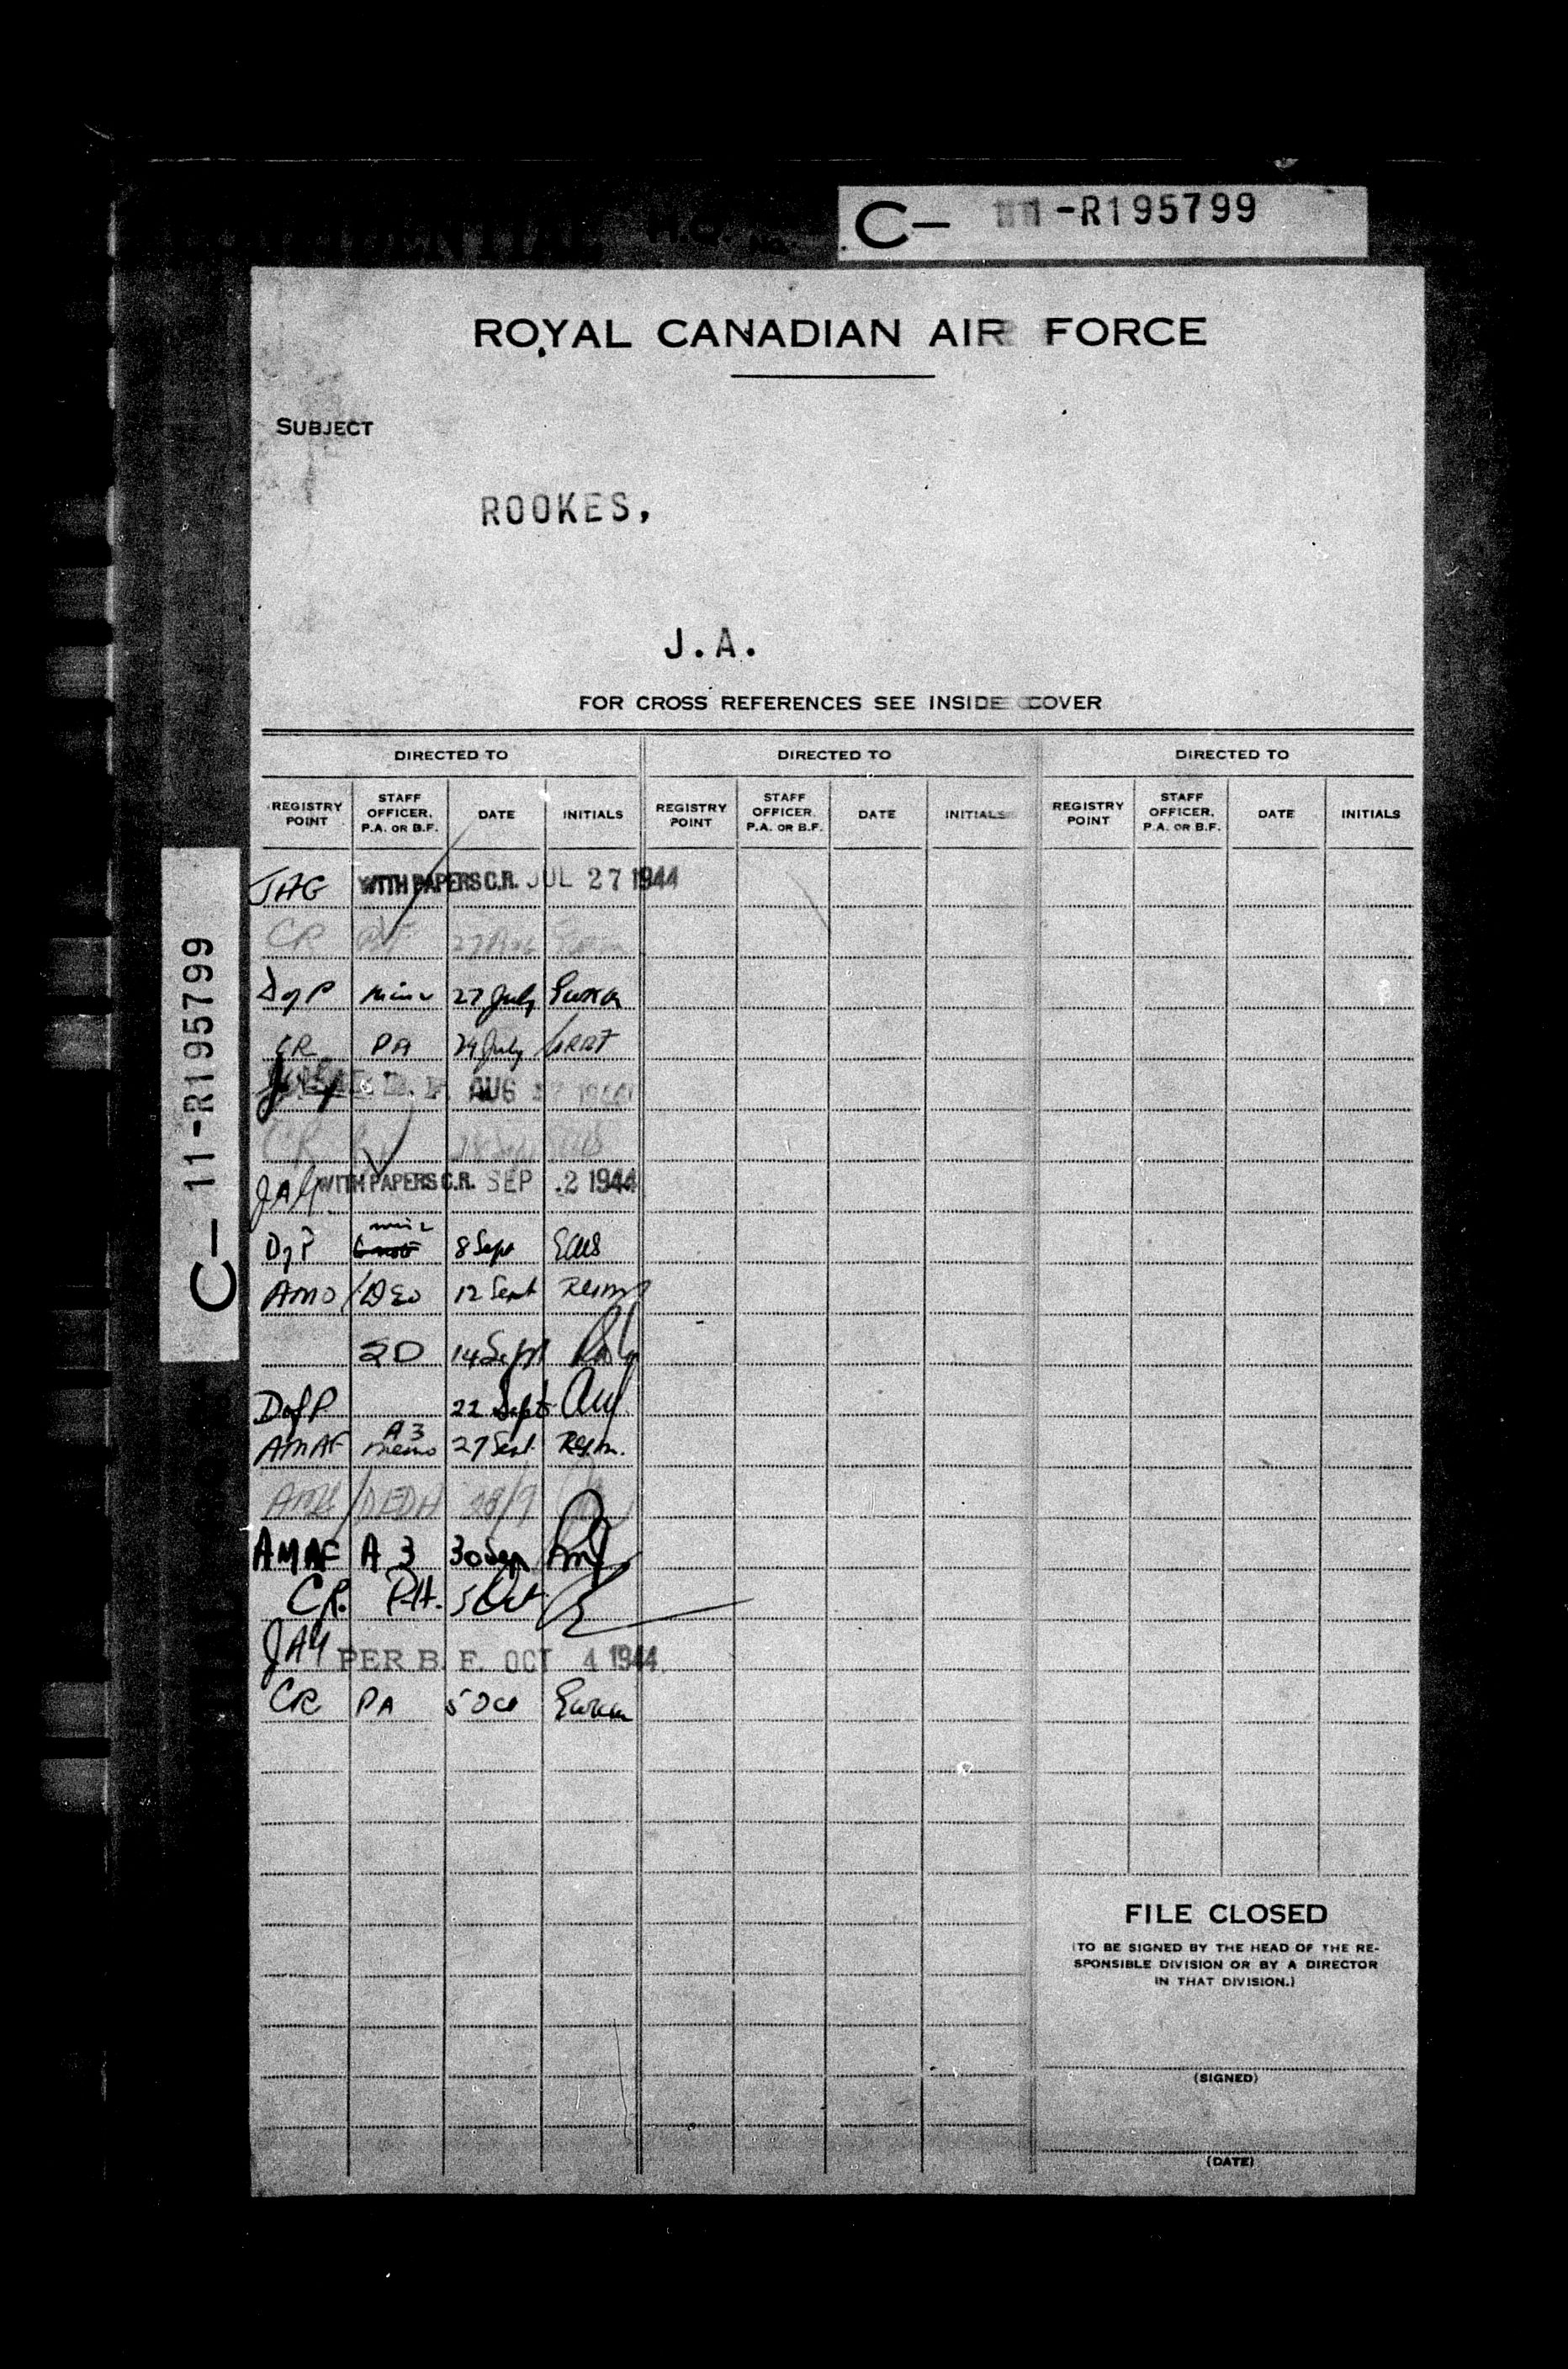 CONFIDENTIAL H.Q. No. C- 11-R195799
ROYAL CANADIAN AIR FORCE
SUBJECT
ROOKES,
J.A.
FOR CROSS REFERENCES SEE INSIDE COVER
DIRECTED TO DIRECTED TO DIRECTED TO
REGISTRY POINT STAFF OFFICER, P.A. OR B.F. DATE INITIALS REGISTRY POINT STAFF OFFICER, P.A. OR B.F. DATE INITIALS REGISTRY POINT STAFF OFFICER, P.A. OR B.F. DATE INITIALS
JAG WITH PAPERS C.R. JUL 27 1944
CR BF 27 Aug
D of P min 2 27 July
CR PA 29 July
AUG 1944
CR
JAG WITH PAPERS C.R. SEP 2 1944
D of P min 2 8 Sept
AMO/DEO 12 Sept
SD 14 Sept
D of P 22 Sept
AMAF A3 memo 27 Sept
DEDH 28/9
AMAF A 3 30 Sep
CR. P.A. 5 Oct
JAG PER B.F. OCT 4 1944
CR PA 5 Oct
C- 11-R195799
FILE CLOSED
(TO BE SIGNED BY THE HEAD OF THE RE-
SPONSIBLE DIVISION OR BY A DIRECTOR
IN THAT DIVISION.)
(SIGNED)
(DATE)